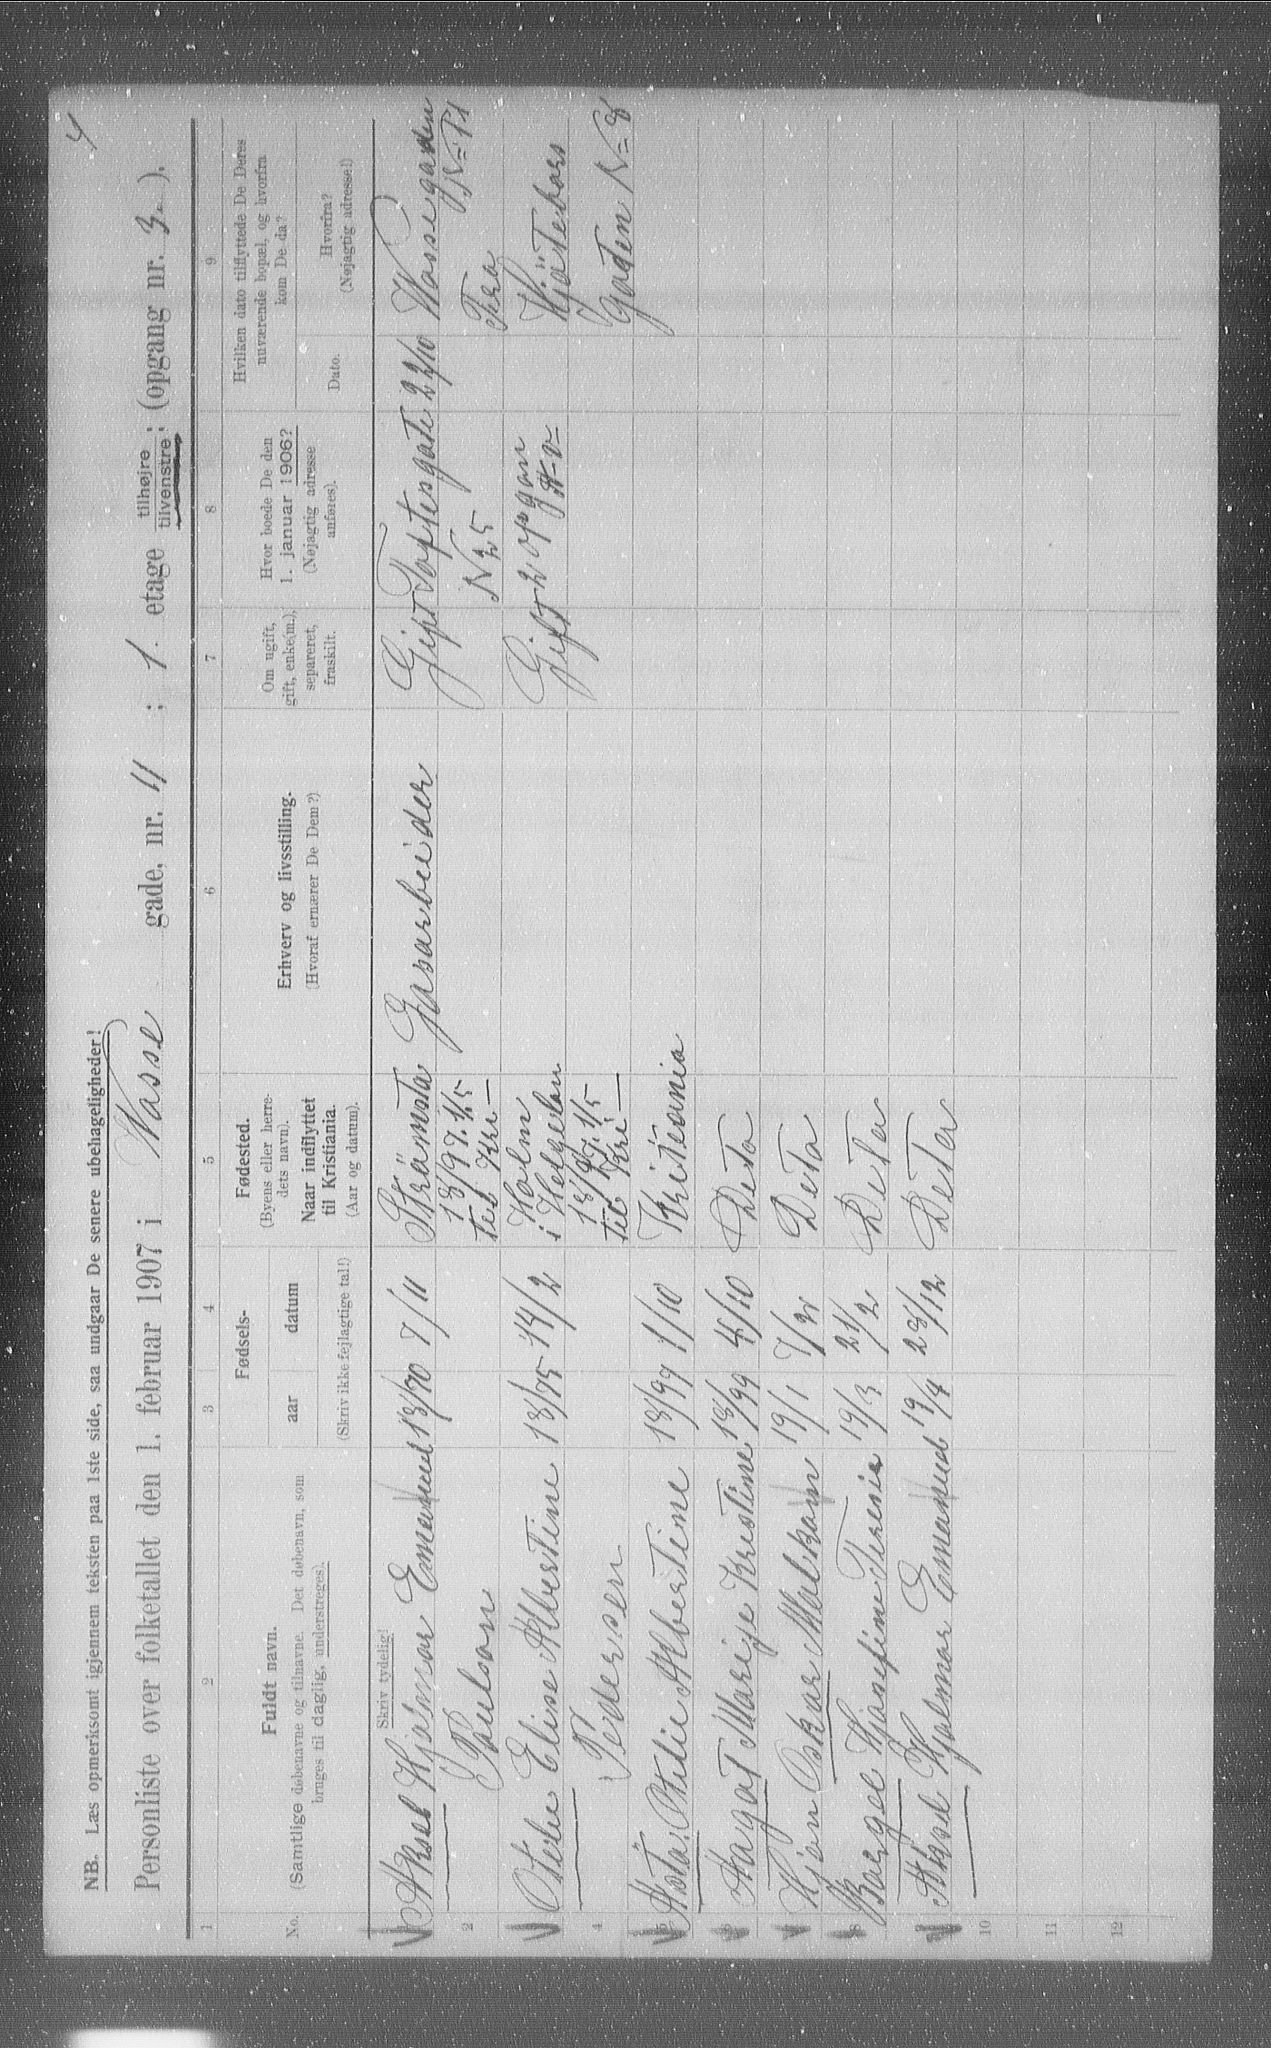 4
NB. Læs opmerksomt igjennem teksten paa 1ste side, saa undgaar De senere ubehageligheder!
Personliste over folketallet den 1. februar 1907 i Wasse gade, nr. 11 ; 1. etage tilhøjre tilvenstre ; (opgang nr. 3. ).
1 2 3 4 5 6 7 8 9
No.
Fuldt navn.
(Samtlige døbenavne og tilnavne. Det døbenavn, som
bruges til daglig, understreges).
Skriv tydelig!
Fødsels-
aar datum
(Skriv ikke fejlagtige tal!)
Fødested.
(Byens eller herre-
dets navn).
Naar indflyttet
til Kristiania.
(Aar og datum).
Erhverv og livsstilling.
(Hvoraf ernærer De Dem?)
Om ugift,
gift, enke(m.),
separeret,
fraskilt.
Hvor boede De den
1. januar 1906?
(Nøjagtig adresse
anføres).
Hvilken dato tilflyttede De Deres
nuværende bopæl, og hvorfra
kom De da?
Dato.
Hvorfra?
(Nøjagtig adresse!)
Aksel Hjalmar Emanuel 18/70 7/11 Strämsta Gasarbeider Gift Toftesgate 22/10 Wassegaden
2 Poulsen 18/97. 1/5 N 25 Fra N= 11
til Kri
Otelie Elise Albertine 18/75 14/2 Holm Gift 2 opgan Hjätekars
i Helgelan
4 Pedersen 18/97. 1/5 Gaden N= 8
til Kri
5 Asta Otelie Albertine 18/97 1/10 Kritiania
6 Aagot Marije Kristine 18/99 4/10 Deto
7 Hjøn Oskar Malkom 19/1 7/2 Deto
8 Borgel Hjosefine Teresia 19/3 21/2 Deto
9 Aksel Hjalmar Emanuel 19/4 28/12 Deto
10
11
12